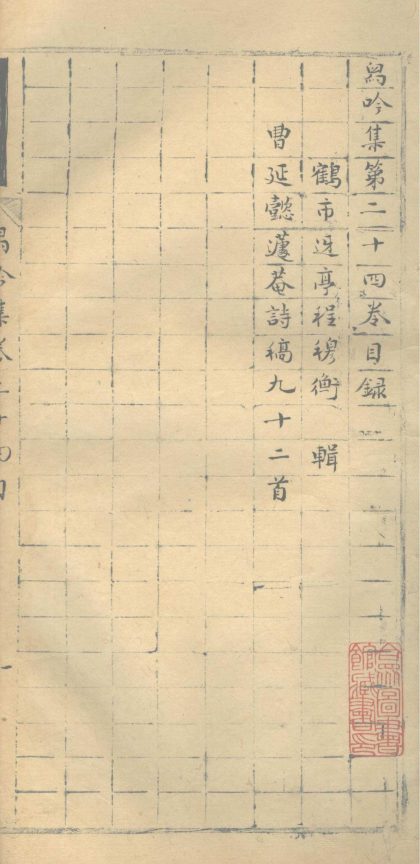 舄吟集第二十四卷目録
鶴市迓亭程穆衡 輯
曹延懿蘧菴詩稿九十二首
舄吟集卷二十四